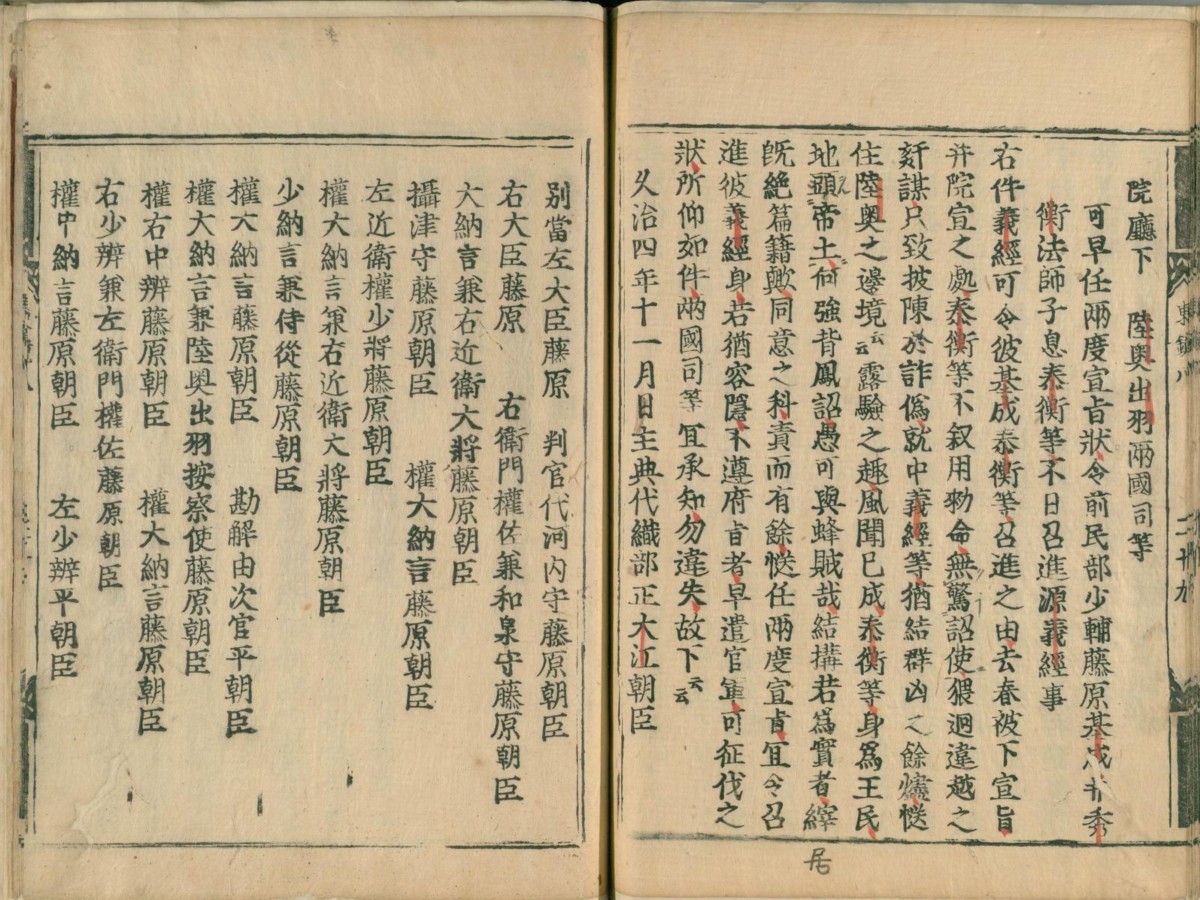 院廳下　陸奧出羽兩國司等
可早任兩度宣旨狀令前民部少輔藤原基成并秀
衡法師子息泰衡等不日召進源義經事
右件義經可令彼基成泰衡等召進之由去春被下宣旨
并院宣之處泰衡等不叙用勑命無驚詔使猥迴違越之
奸謀只致披陳於詐僞就中義經等猶結群凶之餘燼慥
住陸奧之邊境云云露驗之趣風聞已成泰衡等身爲王民
地頭帝土何強背鳳詔愚可與蜂賊哉結搆若爲實者縡
旣絶篇籍歟同意之科責而有餘慥任兩度宣旨冝令召
進彼義經身若猶容隱不遵府旨者早遣官軍可征伐之
狀所仰如件兩國司等冝承知勿違失故下云云
久治四年十一月日主典代織部正大江朝臣
居
別當左大臣藤原　判官代河内守藤原朝臣
右大臣藤原　右衛門權佐兼和泉守藤原朝臣
大納言兼右近衛大將藤原朝臣
攝津守藤原朝臣　權大納言藤原朝臣
左近衛權少將藤原朝臣
權大納言兼右近衛大將藤原朝臣
少納言兼侍從藤原朝臣
權大納言藤原朝臣　勘解由次官平朝臣
權大納言兼陸奧出羽按察使藤原朝臣
權右中辨藤原朝臣　權大納言藤原朝臣
右少辨兼左衛門權佐藤原朝臣
權中納言藤原朝臣　左少辨平朝臣